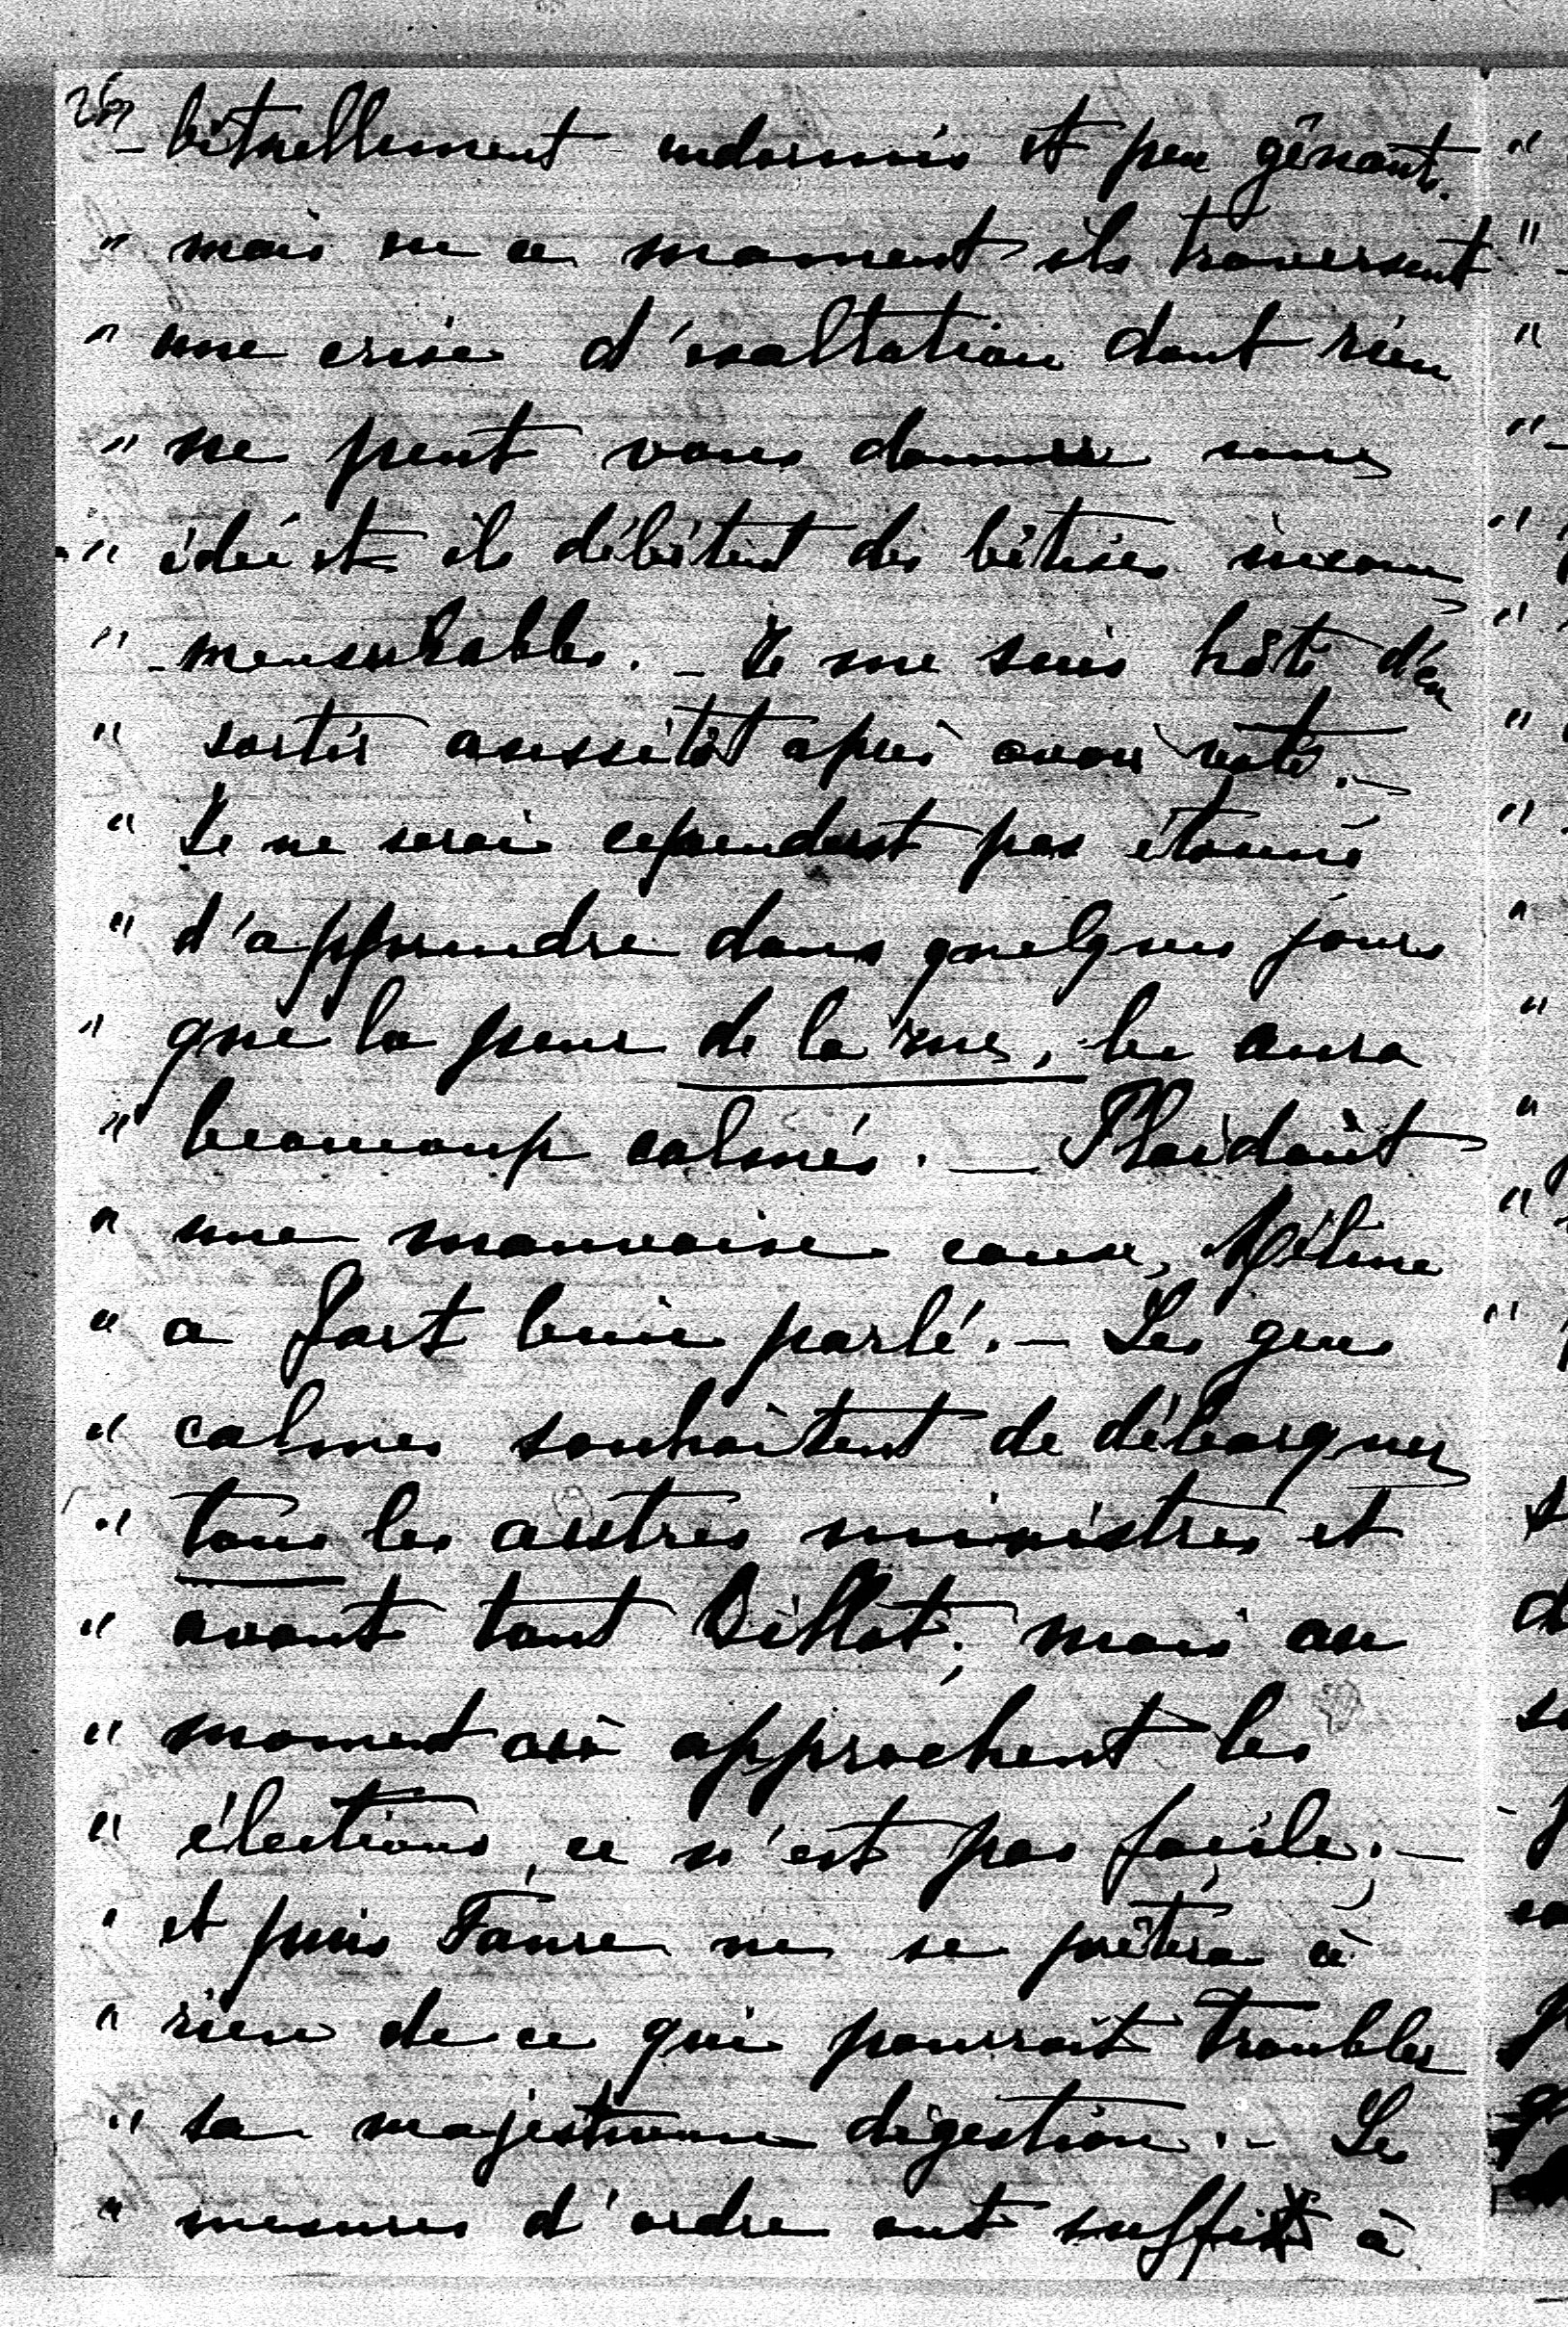 - bituellement endormis et peu gênants.
" mais en ce moment ils traversent
" une crise d'exaltation dont rien
" ne peut vous donner une
" idée et ils débitent des bêtises incom
" - mensurables. - Je me suis hâté d'en
" sortir aussitôt après avoir voté. -
" Je ne serai cependant pas étonné
" d'apprendre dans quelques jours
" que la peur de la rue, les aura
" beaucoup calmés. - Plaidant
" une mauvaise cause, Méline
" a fort bien parlé. - Les gens
" calmes souhaitent de débarquer
" tous les autres ministres et
" avant tout Billot; mais au
" moment où approchent les
" élections, ce n'est pas facile. -
" et puis Faure ne se prêtera à
" rien de ce qui pourrait troubler
" sa majestueuse digestion. - Les
" mesures d'ordre ont suffi à